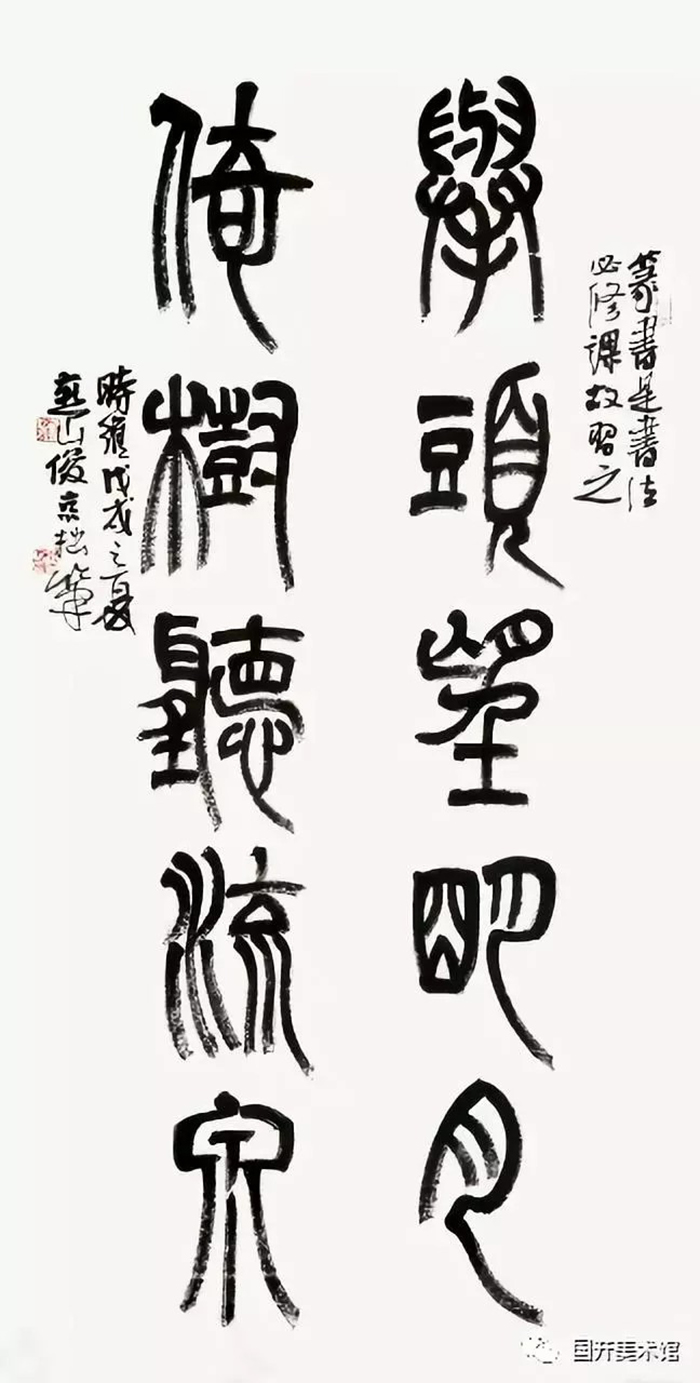 篆書是書法
必修課故習之
舉頭望明月
倚樹聽流泉
時維戊戌之夏
燕山俊京拙筆
国开美术馆